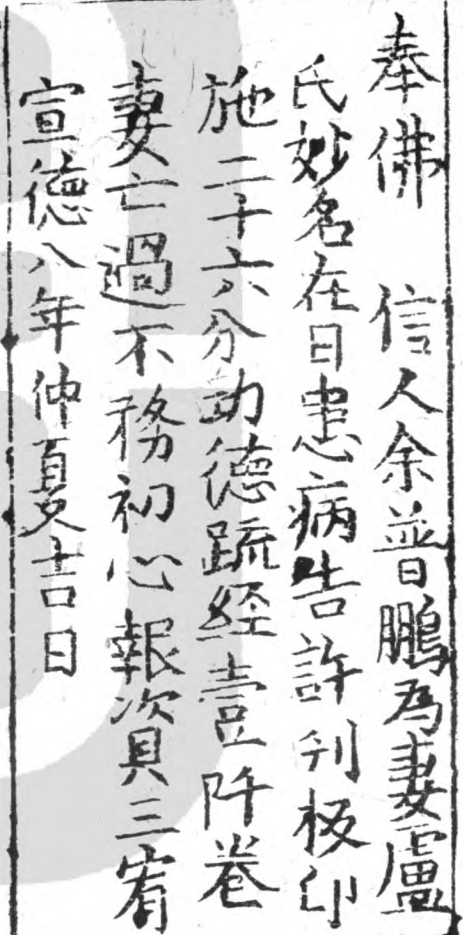 奉佛　信人余普鵬為妻盧
氏妙名在日患病告許刋板印
施二十六分功德䟽経壹阡卷
妻亡過不務初心報資三宥
宣德八年仲夏吉日